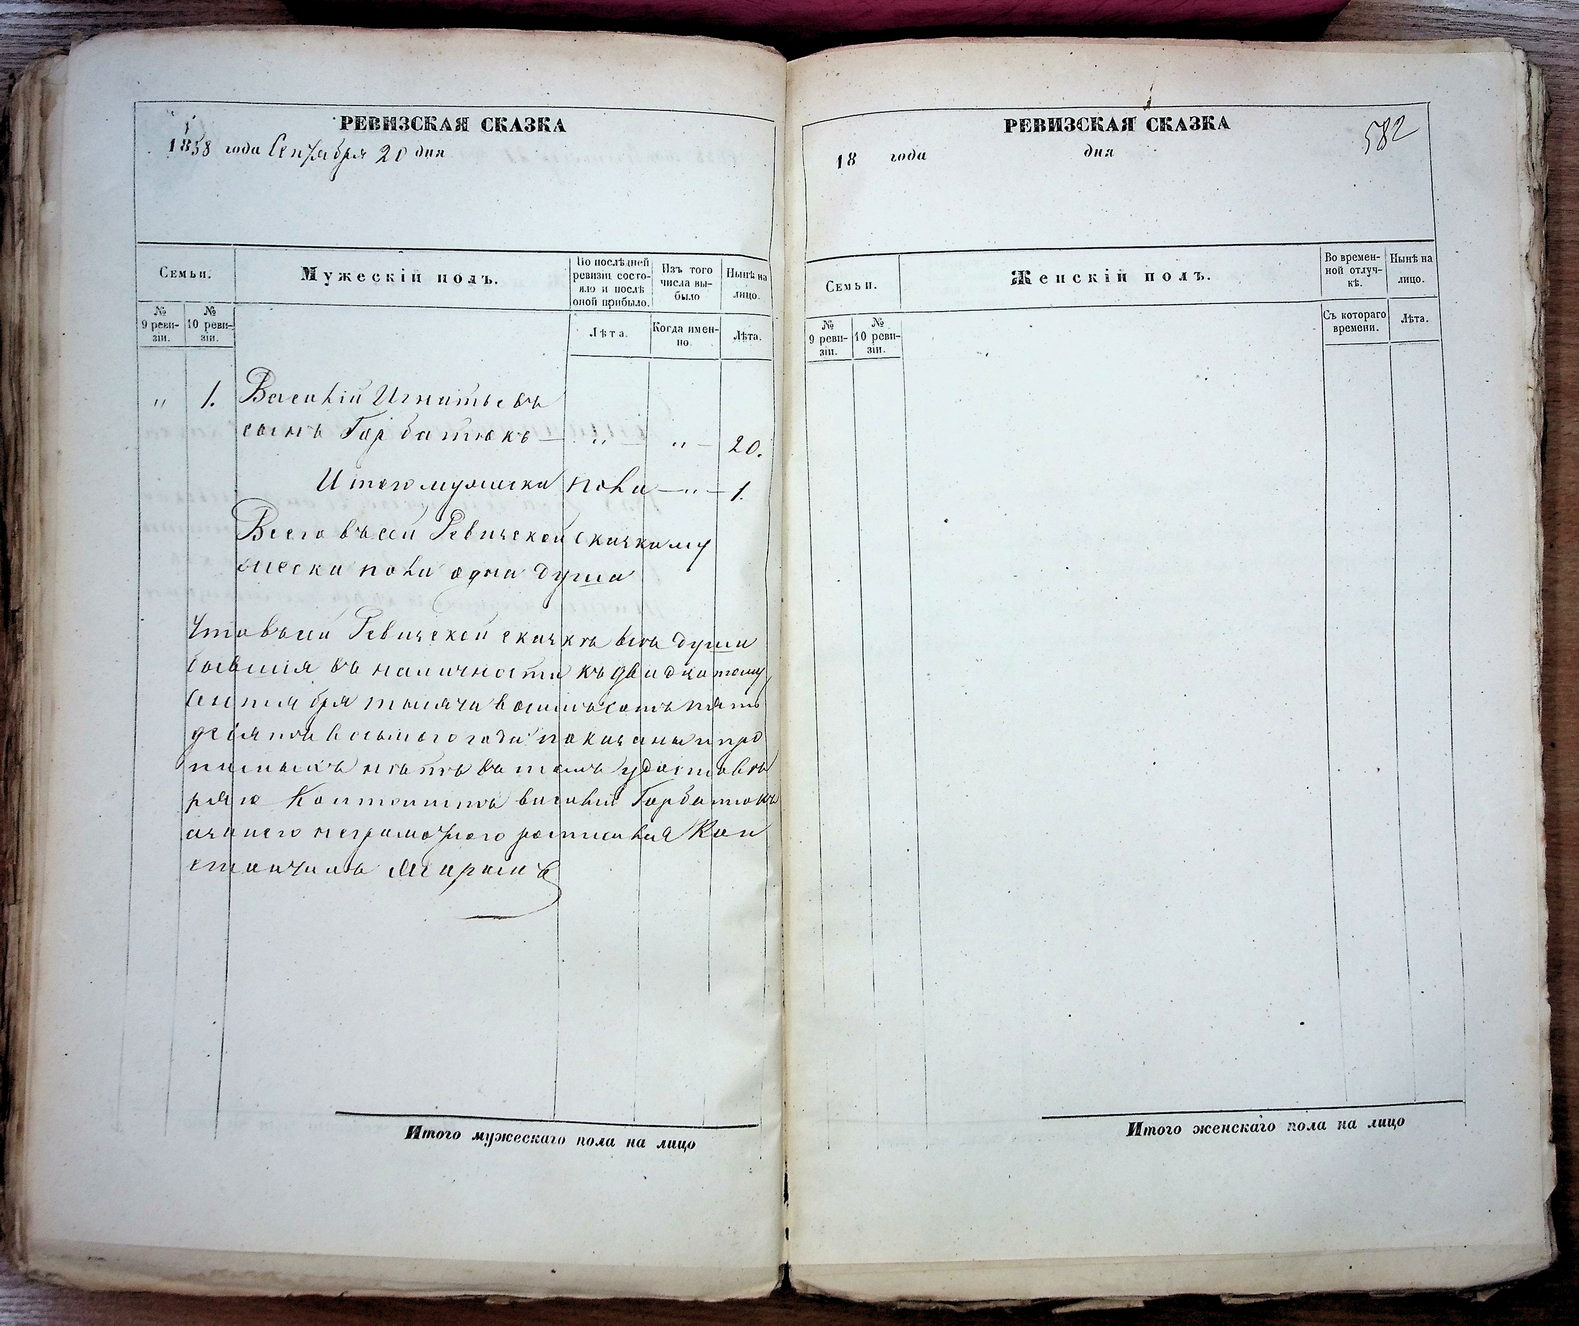 РЕВИЗСКАЯ СКАЗКА
1858 года Сентября 20 дня
Семьи.
Мужескій полъ.
По послѣдней ревизіи состояло и послѣ оной прибыло.
Изъ того числа выбыло
Нынѣ на лицо.
№ 9 ревизіи.
№ 10 ревизіи.
Лѣта.
Когда именно.
Лѣта.
„ 1. Василій Игнатьевъ
сынъ Горбатюкъ — „ „ — 20.
Итого мужеска пола — „ — 1.
Всего въ сей Ревизской скажки му
жеска пола одна душа
Что въ сей Ревизской скажкѣ всѣ души
бывшія въ наличности къ двадцатому
Сентября тысяча восимьсотъ пять
десятой восьмого года показаны и про
писныхъ нѣтъ въ томъ удостовѣ
ряю Василій Горбатюкъ
а за него неграмотного росписался
РЕВИЗСКАЯ СКАЗКА
582
18 года дня
Семьи.
Женскій полъ.
Во временной отлучкѣ.
Нынѣ на лицо.
№ 9 ревизіи.
№ 10 ревизіи.
Съ котораго времени.
Лѣта.
Итого мужескаго пола на лицо
Итого женскаго пола на лицо